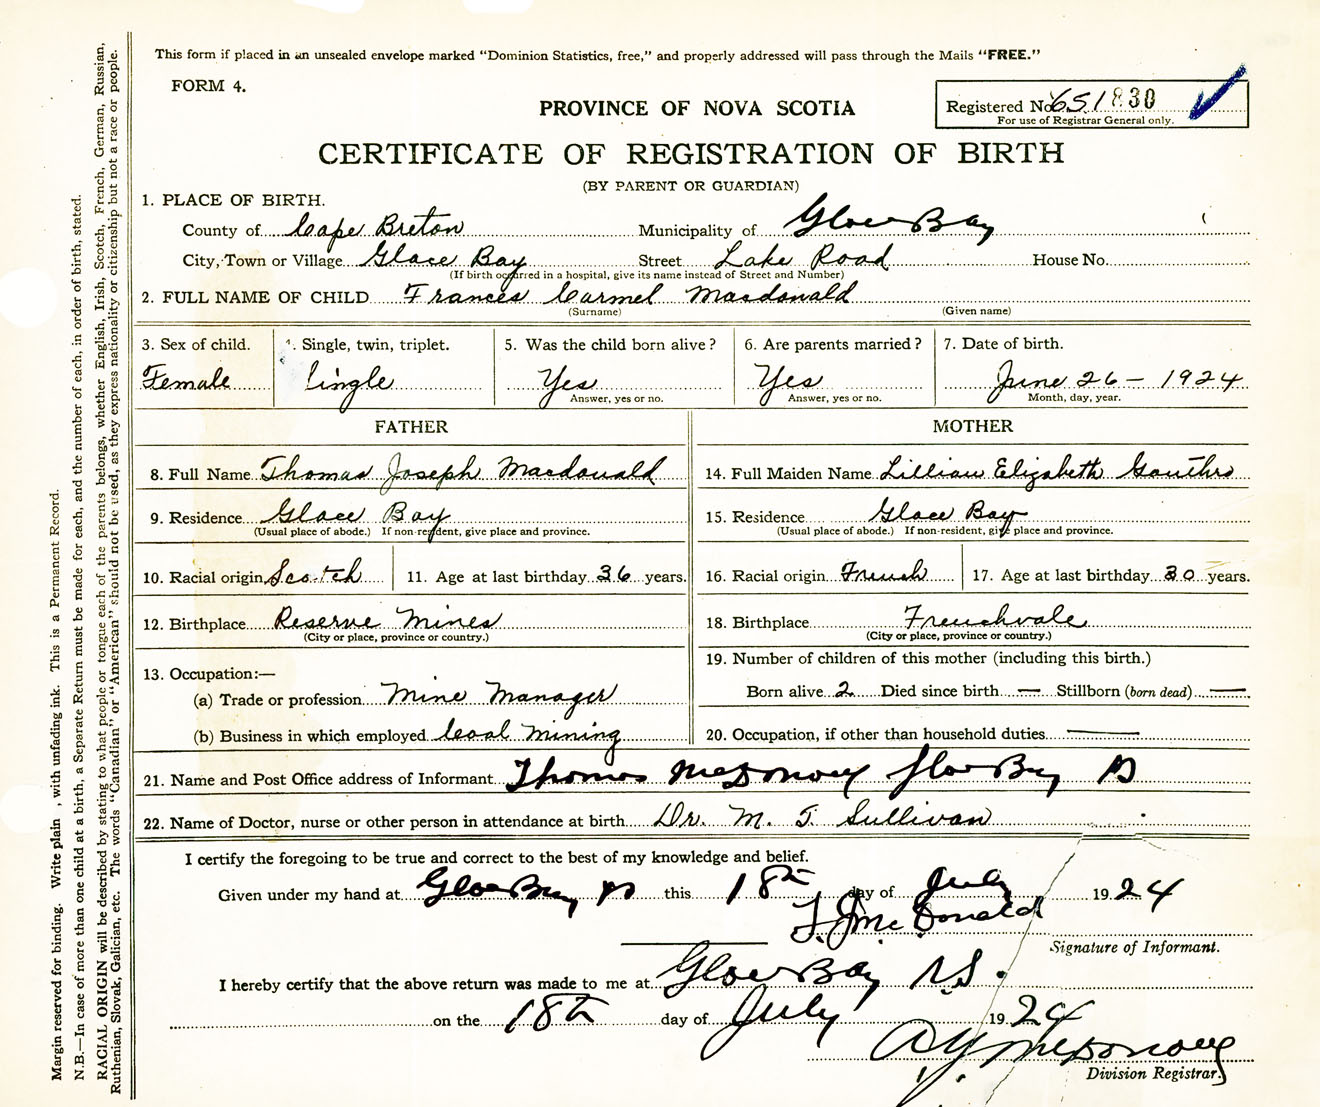 This form if placed in an unsealed envelope marked "Dominion Statistics, free," and properly addressed will pass through the Mails "FREE."
FORM 4.
Registered No. 651830
For use of Registrar General only.
PROVINCE OF NOVA SCOTIA
CERTIFICATE OF REGISTRATION OF BIRTH
(BY PARENT OR GUARDIAN)
1. PLACE OF BIRTH.
County of Cape Breton Municipality of Glace Bay
City, Town or Village Glace Bay Street Lake Road House No.
(If birth occurred in a hospital, give its name instead of Street and Number)
2. FULL NAME OF CHILD Frances Carmel Macdonald
(Surname) (Given name)
3. Sex of child. 4. Single, twin, triplet. 5. Was the child born alive? 6. Are parents married? 7. Date of birth.
Female Single Yes Yes June 26 - 1924
Answer, yes or no. Answer, yes or no. Month, day, year.
FATHER MOTHER
8. Full Name Thomas Joseph Macdonald 14. Full Maiden Name Lillian Elizabeth Gouthro
9. Residence Glace Bay 15. Residence Glace Bay
(Usual place of abode.) If non-resident, give place and province. (Usual place of abode.) If non-resident, give place and province.
10. Racial origin Scotch 11. Age at last birthday 36 years. 16. Racial origin French 17. Age at last birthday 30 years.
12. Birthplace Reserve Mines 18. Birthplace Frenchvale
(City or place, province or country.) (City or place, province or country.)
13. Occupation:— 19. Number of children of this mother (including this birth.)
(a) Trade or profession Mine Manager Born alive 2 Died since birth — Stillborn (born dead) —
(b) Business in which employed Coal Mining 20. Occupation, if other than household duties —
21. Name and Post Office address of Informant Thomas Glace Bay
22. Name of Doctor, nurse or other person in attendance at birth Dr. M. T. Sullivan
I certify the foregoing to be true and correct to the best of my knowledge and belief.
Given under my hand at Glace Bay this 18th day of July 1924
T. J. McDonald
Signature of Informant.
I hereby certify that the above return was made to me at Glace Bay N.S.
on the 18th day of July 1924
Division Registrar.
Margin reserved for binding. Write plain, with unfading ink. This is a Permanent Record.
N.B.—In case of more than one child at a birth, a Separate Return must be made for each, and the number of each, in order of birth, stated.
RACIAL ORIGIN will be described by stating to what people or tongue each of the parents belongs, whether English, Irish, Scotch, French, German, Russian,
Ruthenian, Slovak, Galician, etc. The words "Canadian" or "American" should not be used, as they express nationality or citizenship but not a race or people.